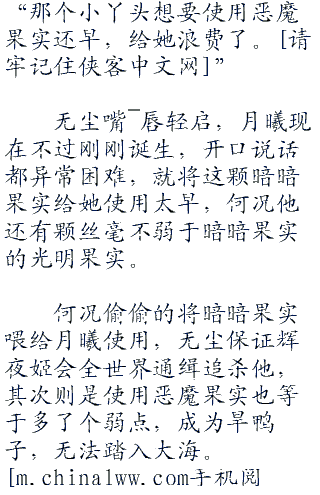 “那个小丫头想要使用恶魔
果实还早，给她浪费了。[请
牢记住侠客中文网]”
无尘嘴¯唇轻启，月曦现
在不过刚刚诞生，开口说话
都异常困难，就将这颗暗暗
果实给她使用太早，何况他
还有颗丝毫不弱于暗暗果实
的光明果实。
何况偷偷的将暗暗果实
喂给月曦使用，无尘保证辉
夜姬会全世界通缉追杀他，
其次则是使用恶魔果实也等
于多了个弱点，成为旱鸭
子，无法踏入大海。
[m.chinalww.com手机阅